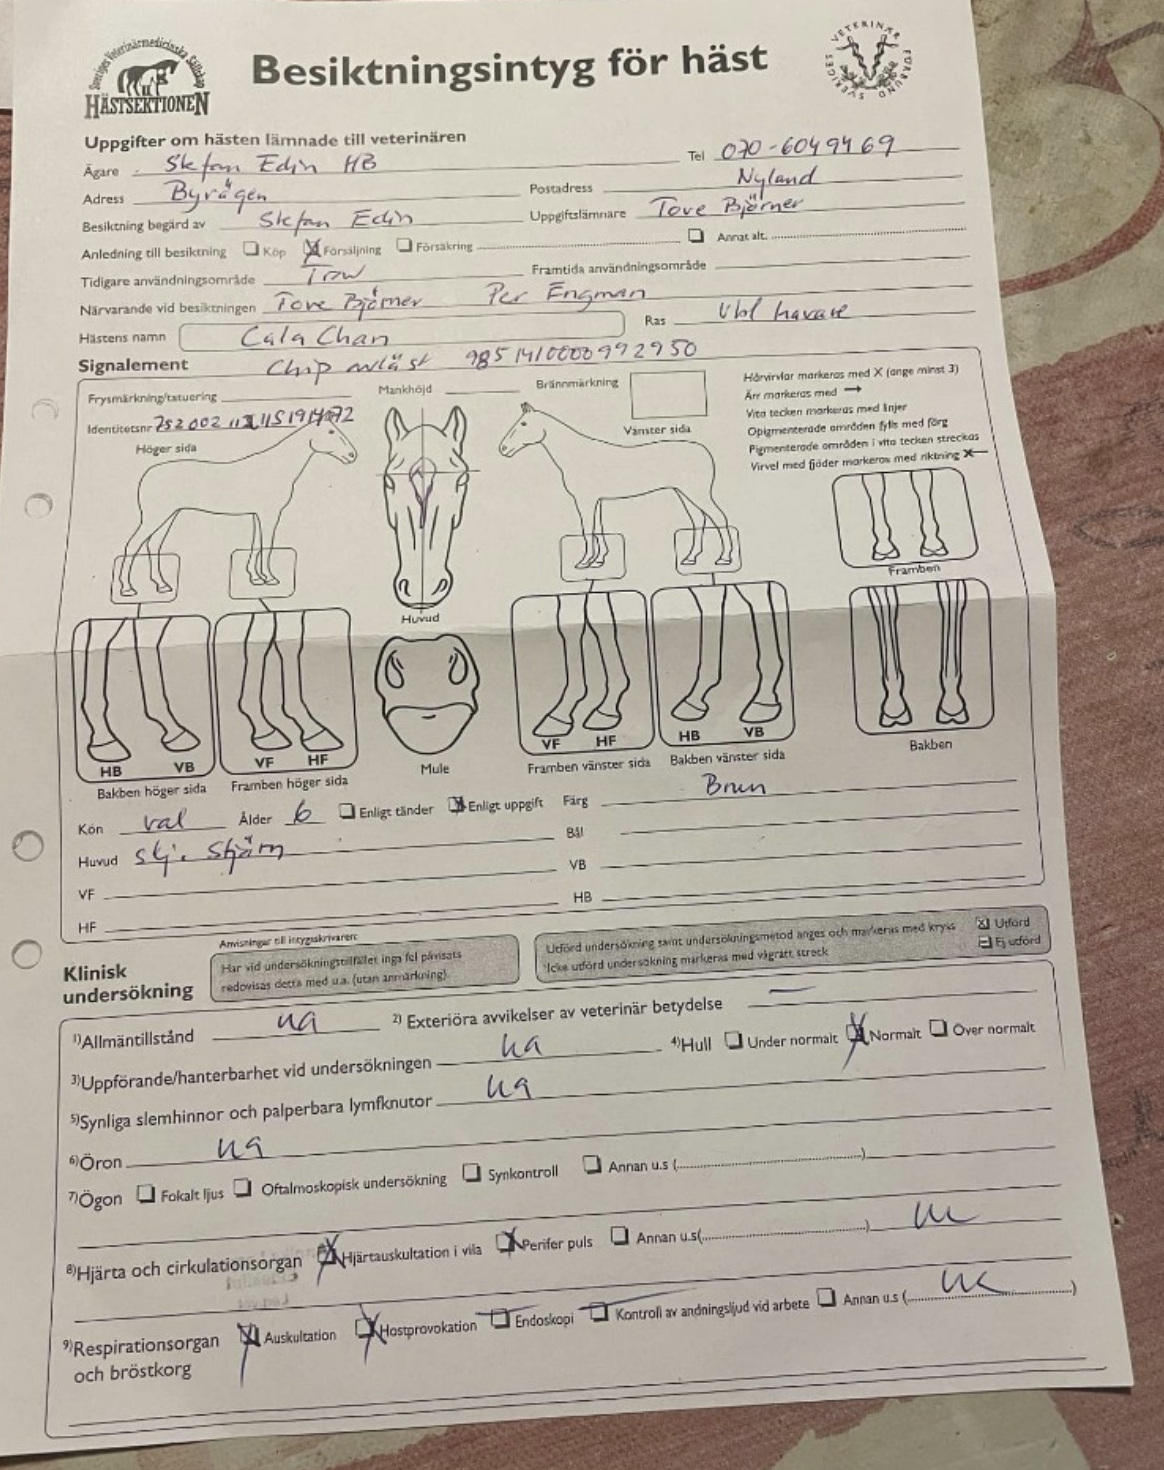 Sveriges Veterinärmedicinska Sällskap
HÄSTSEKTIONEN
SVERIGES VETERINÄR FÖRBUND
Besiktningsintyg för häst
Uppgifter om hästen lämnade till veterinären
Ägare Stefan Edin HB Tel 070-6049469
Adress Byvägen Postadress Nyland
Besiktning begärd av Stefan Edin Uppgiftslämnare Tove Björner
Anledning till besiktning Köp Försäljning Försäkring Annat alt.
Tidigare användningsområde Trav Framtida användningsområde
Närvarande vid besiktningen Tove Björner Per Engman
Hästens namn Cala Chan Ras Vbl travare
Signalement Chip avläst 985141000992950
Frysmärkning/tatuering Mankhöjd Brännmärkning
Identitetsnr
Hårvirvlar markeras med X (ange minst 3)
Ärr markeras med →
Vita tecken markeras med linjer
Opigmenterade områden fylls med färg
Pigmenterade områden i vita tecken streckas
Virvel med fjäder markeras med riktning X←
Höger sida Vänster sida
Framben
Huvud
HB VB VF HF VF HF HB VB
Bakben höger sida Framben höger sida Mule Framben vänster sida Bakben vänster sida Bakben
Kön val Ålder 6 Enligt tänder Enligt uppgift Färg Brun
Huvud stj. stjärn Bål
VF VB
HF HB
Klinisk
undersökning
Anvisningar till intygsskrivaren:
Har vid undersökningstillfället inga fel påvisats
redovisas detta med u.a. (utan anmärkning).
Utförd undersökning samt undersökningsmetod anges och markeras med kryss Utförd
Icke utförd undersökning markeras med vågrätt streck Ej utförd
1)Allmäntillstånd ua 2) Exteriöra avvikelser av veterinär betydelse —
3)Uppförande/hanterbarhet vid undersökningen ua 4)Hull Under normalt Normalt Över normalt
5)Synliga slemhinnor och palperbara lymfknutor ua
6)Öron ua
7)Ögon Fokalt ljus Oftalmoskopisk undersökning Synkontroll Annan u.s (....)
8)Hjärta och cirkulationsorgan Hjärtauskultation i vila Perifer puls Annan u.s(....) ua
9)Respirationsorgan Auskultation Hostprovokation Endoskopi Kontroll av andningsljud vid arbete Annan u.s (....ua....)
och bröstkorg